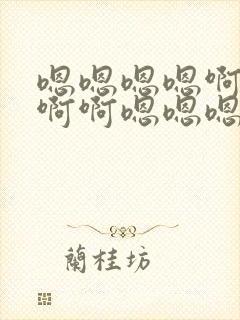 嗯嗯嗯嗯啊
啊啊嗯嗯嗯
蘭桂坊